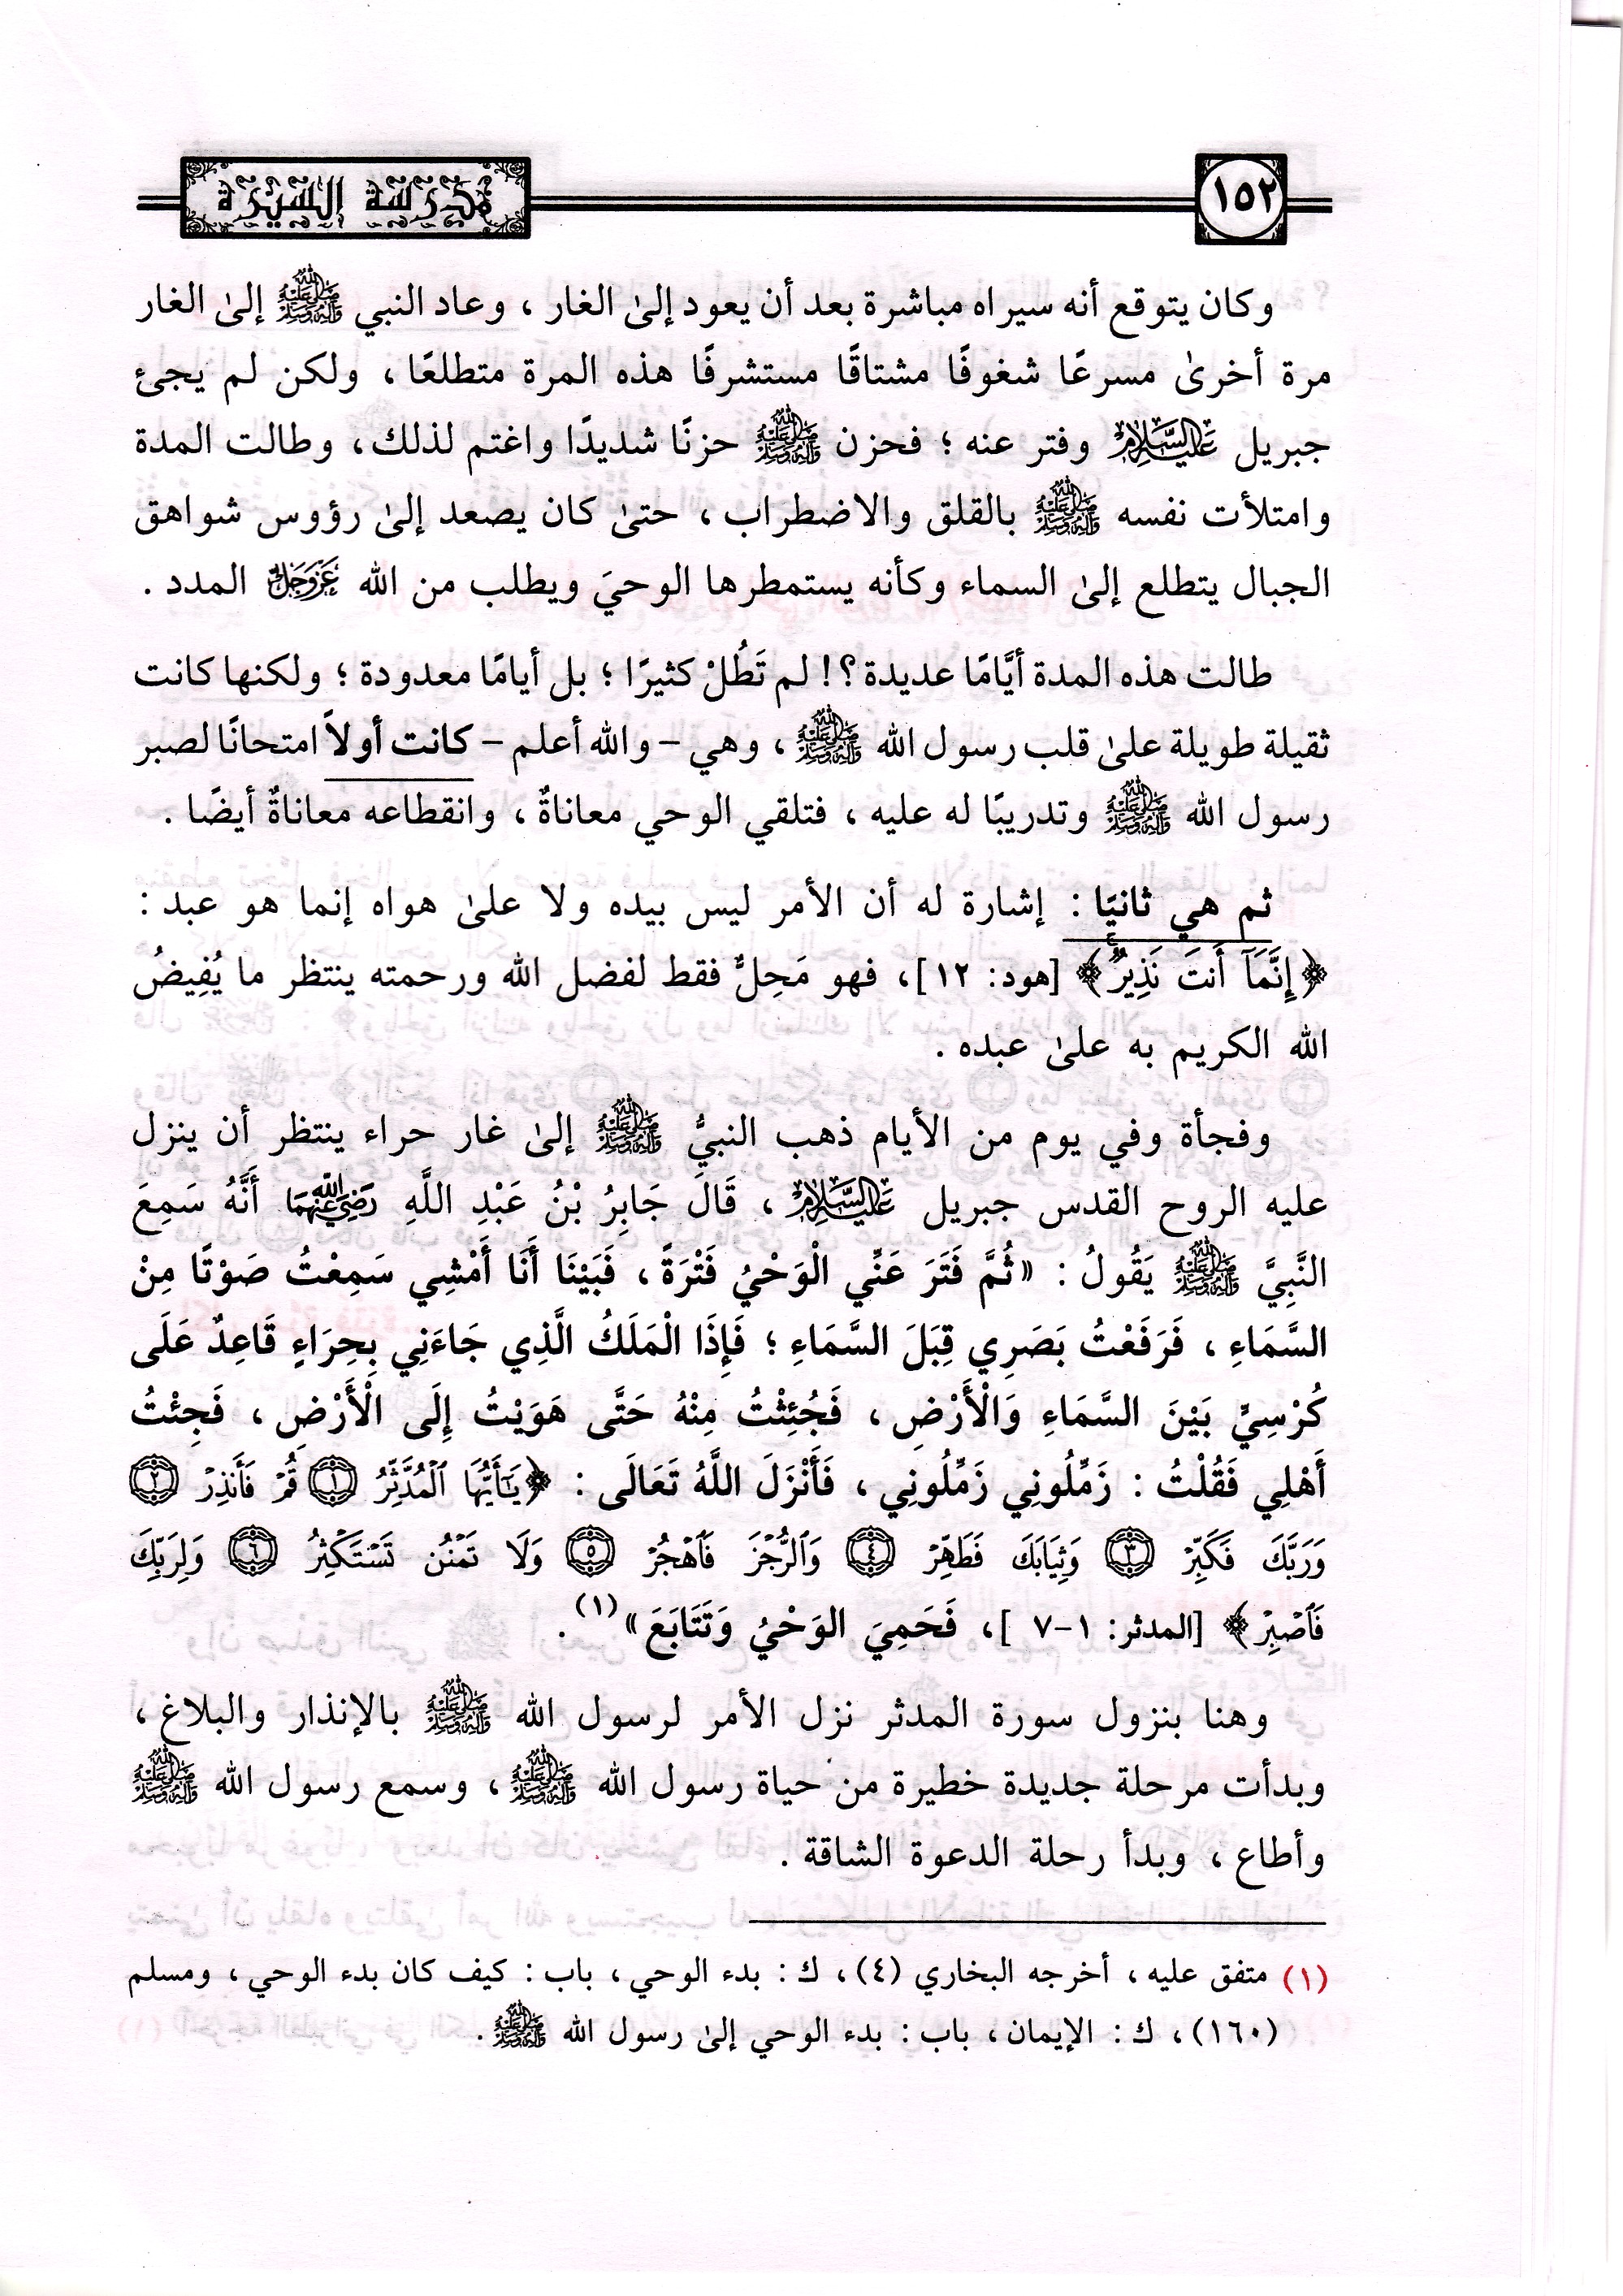 ١٥٢
مدرسة السيرة
وكان يتوقع أنه سيراه مباشرة بعد أن يعود إلىٰ الغار ، وعاد النبي ﷺ إلىٰ الغار
مرة أخرىٰ مسرعًا شغوفًا مشتاقًا مستشرفًا هذه المرة متطلعًا ، ولكن لم يجئ
جبريل عَلَيْهِ السَّلَامُ وفتر عنه ؛ فحزن ﷺ حزنًا شديدًا واغتم لذلك ، وطالت المدة
وامتلأت نفسه ﷺ بالقلق والاضطراب ، حتىٰ كان يصعد إلىٰ رؤوس شواهق
الجبال يتطلع إلىٰ السماء وكأنه يستمطرها الوحيَ ويطلب من الله عَزَّ وَجَلَّ المدد .
طالت هذه المدة أيَّامًا عديدة ؟! لم تَطُلْ كثيرًا ؛ بل أيامًا معدودة ؛ ولكنها كانت
ثقيلة طويلة علىٰ قلب رسول الله ﷺ ، وهي – والله أعلم – كانت أولاً امتحانًا لصبر
رسول الله ﷺ وتدريبًا له عليه ، فتلقي الوحي معاناةٌ ، وانقطاعه معاناةٌ أيضًا .
ثم هي ثانيًا : إشارة له أن الأمر ليس بيده ولا علىٰ هواه إنما هو عبد :
﴿إِنَّمَآ أَنتَ نَذِيرٌ﴾ [هود: ١٢]، فهو مَحِلٌّ فقط لفضل الله ورحمته ينتظر ما يُفِيضُ
الله الكريم به علىٰ عبده .
وفجأة وفي يوم من الأيام ذهب النبيُّ ﷺ إلىٰ غار حراء ينتظر أن ينزل
عليه الروح القدس جبريل عَلَيْهِ السَّلَامُ ، قَالَ جَابِرُ بْنُ عَبْدِ اللَّهِ رَضِيَ اللهُ عَنْهُمَا أَنَّهُ سَمِعَ
النَّبِيَّ ﷺ يَقُولُ : «ثُمَّ فَتَرَ عَنِّي الْوَحْيُ فَتْرَةً ، فَبَيْنَا أَنَا أَمْشِي سَمِعْتُ صَوْتًا مِنْ
السَّمَاءِ ، فَرَفَعْتُ بَصَرِي قِبَلَ السَّمَاءِ ؛ فَإِذَا الْمَلَكُ الَّذِي جَاءَنِي بِحِرَاءٍ قَاعِدٌ عَلَى
كُرْسِيٍّ بَيْنَ السَّمَاءِ وَالْأَرْضِ ، فَجُئِثْتُ مِنْهُ حَتَّى هَوَيْتُ إِلَى الْأَرْضِ ، فَجِئْتُ
أَهْلِي فَقُلْتُ : زَمِّلُونِي زَمِّلُونِي ، فَأَنْزَلَ اللَّهُ تَعَالَى : ﴿يَٰٓأَيُّهَا ٱلْمُدَّثِّرُ ١ قُمْ فَأَنذِرْ ٢
وَرَبَّكَ فَكَبِّرْ ٣ وَثِيَابَكَ فَطَهِّرْ ٤ وَٱلرُّجْزَ فَٱهْجُرْ ٥ وَلَا تَمْنُن تَسْتَكْثِرُ ٦ وَلِرَبِّكَ
فَٱصْبِرْ﴾ [المدثر: ١-٧ ]، فَحَمِيَ الوَحْيُ وَتَتَابَعَ» (١) .
وهنا بنزول سورة المدثر نزل الأمر لرسول الله ﷺ بالإنذار والبلاغ ،
وبدأت مرحلة جديدة خطيرة من حياة رسول الله ﷺ ، وسمع رسول الله ﷺ
وأطاع ، وبدأ رحلة الدعوة الشاقة .
(١) متفق عليه ، أخرجه البخاري (٤)، ك : بدء الوحي ، باب : كيف كان بدء الوحي ، ومسلم
(١٦٠)، ك : الإيمان ، باب : بدء الوحي إلىٰ رسول الله ﷺ .